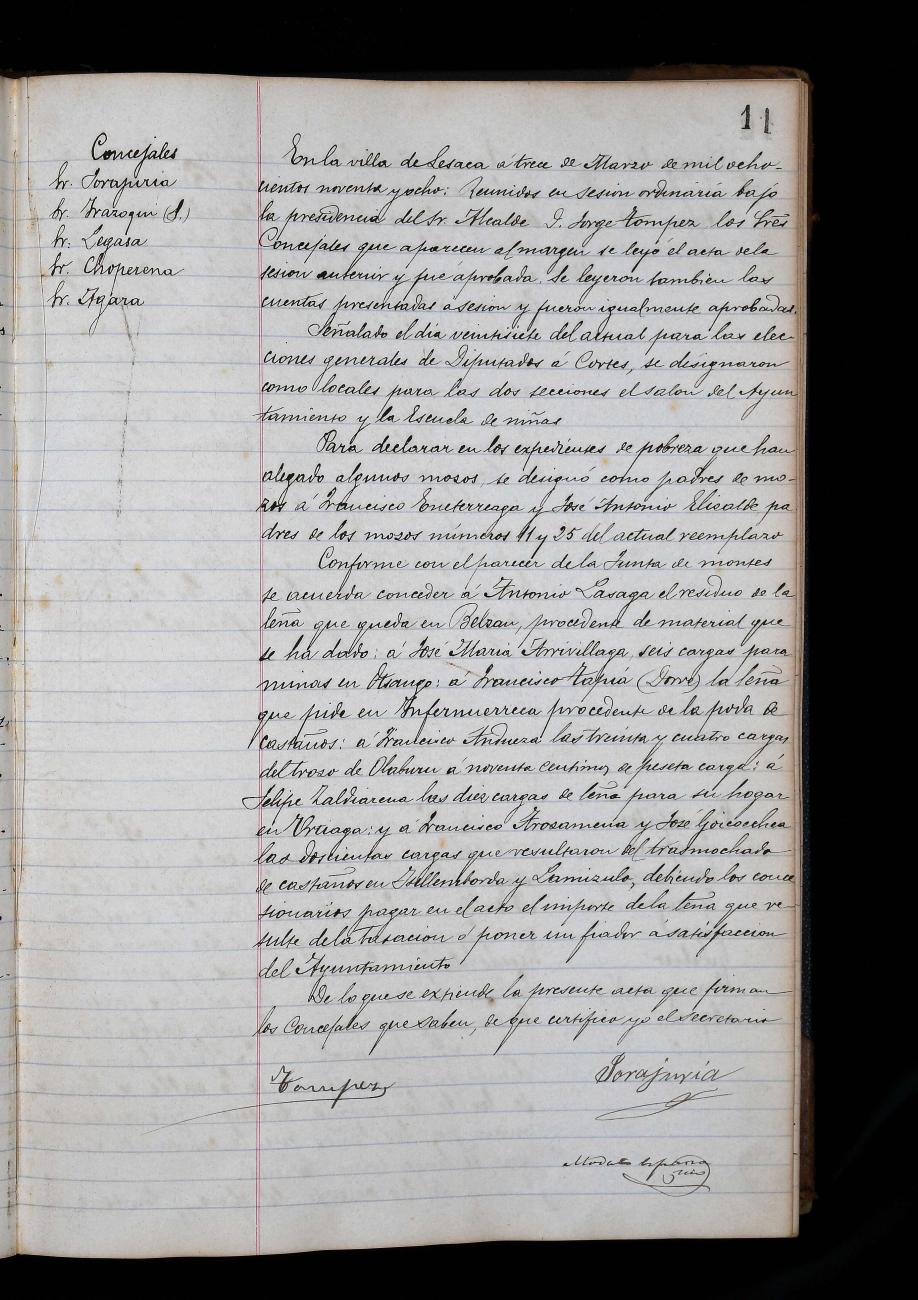 11
Concejales
Sr. Sorajuria
Sr. Irazoqui (J.)
Sr. Legasa
Sr. Choperena
Sr. Igara
En la villa de Lesaca á trece de Marzo de mil ocho-
cientos noventa y ocho: Reunidos en sesion ordinaria bajo
la presidencia del Sr. Alcalde D. Jorge Tompez los Sres
Concejales que aparecen al margen se leyó el acta de la
sesion anterior y fué aprobada. Se leyeron tambien las
cuentas presentadas a sesion y fueron igualmente aprobadas.
Señalado el día veintisiete del actual para las elec-
ciones generales de Diputados á Cortes, se designaron
como locales para las dos secciones el salon del Ayun
tamiento y la Escuela de niñas
Para declarar en los expedientes de pobreza que han
alegado algunos mozos, se designó como padres de mo-
zos á Francisco Eneterreaga y José Antonio Elizalde pa
dres de los mozos números 11 y 25 del actual reemplazo
Conforme con el parecer de la Junta de montes
se acuerda conceder á Antonio Lasaga el residuo de la
leña que queda en Belzau, procedente de material que
se ha dado: á José María Arrivillaga, seis cargas para
minas en Otsango: á Francisco Tapia (Dorre) la leña
que pide en Infernuerreca procedente de la poda de
castaños: á Francisco Andueza las treinta y cuatro cargas
del trozo de Olaburu á noventa centimos de peseta carga: á
Felipe Zaldiarena las diez cargas de leña para su hogar
en Urriaga: y á Francisco Arosamena y José Goicoechea
las doscientas cargas que resultaron del trasmochado
de castaños en Illemborda y Lamizulo, debiendo los conce
sionarios pagar en el acto el importe de la leña que re-
sulte de la tasacion ó poner un fiador á satisfaccion
del Ayuntamiento
De lo que se extiende la presente acta que firman
los Concejales que saben, de que certifico yo el secretario
Tompez
Sorajuria
Modesto Esparza